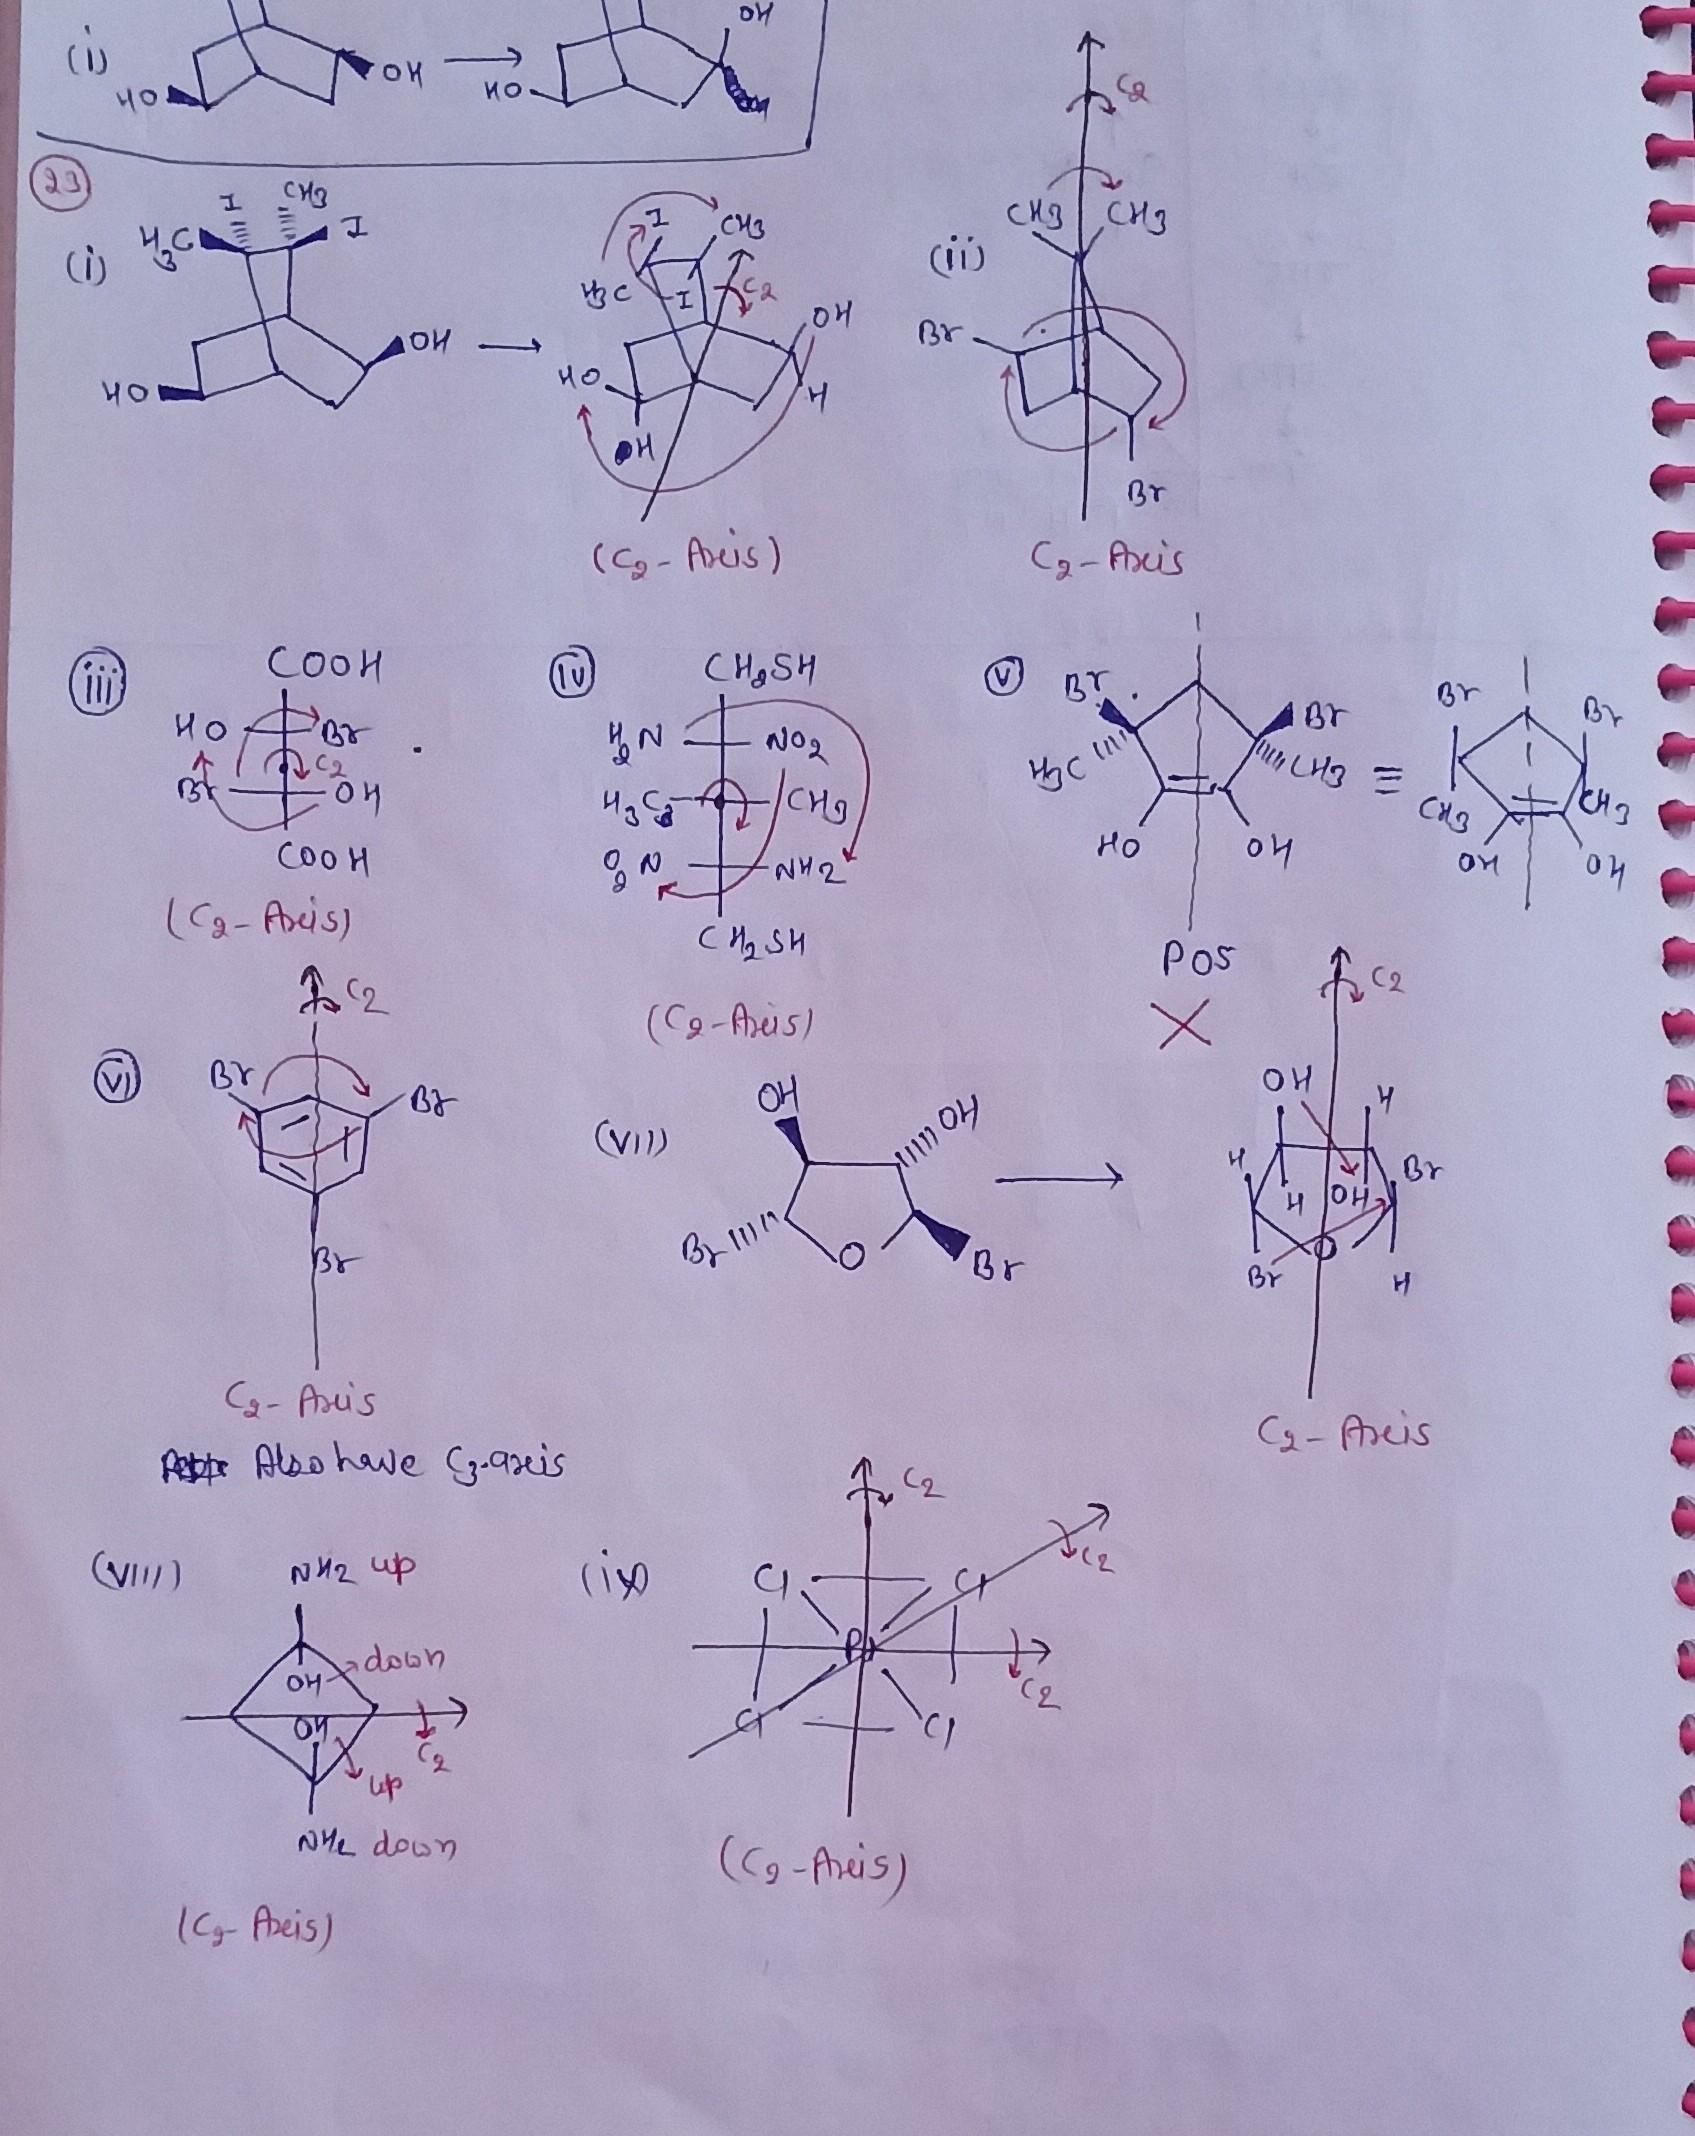 OH
(i)
HO
OH
HO
C2
23
(i)
H3C
I
CH3
I
HO
OH
I
CH3
H3C
I
C2
OH
HO
H
OH
(C2-Axis)
(ii)
CH3 CH3
Br
Br
C2-Axis
iii
COOH
HO Br
C2
Br OH
COOH
(C2-Axis)
iv
CH2SH
H2N NO2
H3C CH3
O2N NH2
CH2SH
(C2-Axis)
v
Br Br
H3C CH3
HO OH
POS
X
≡
Br Br
CH3 CH3
OH OH
vi
C2
Br Br
Br
C2-Axis
Also have C3-axis
(VII)
OH
OH
Br
O
Br
C2
OH H
H Br
H OH
Br O
H
C2-Axis
(VIII)
NH2 up
OH down
OH
C2
up
NH2 down
(C2-Axis)
(ix)
C2
C2
Cl Cl
C2
Cl Cl
(C2-Axis)